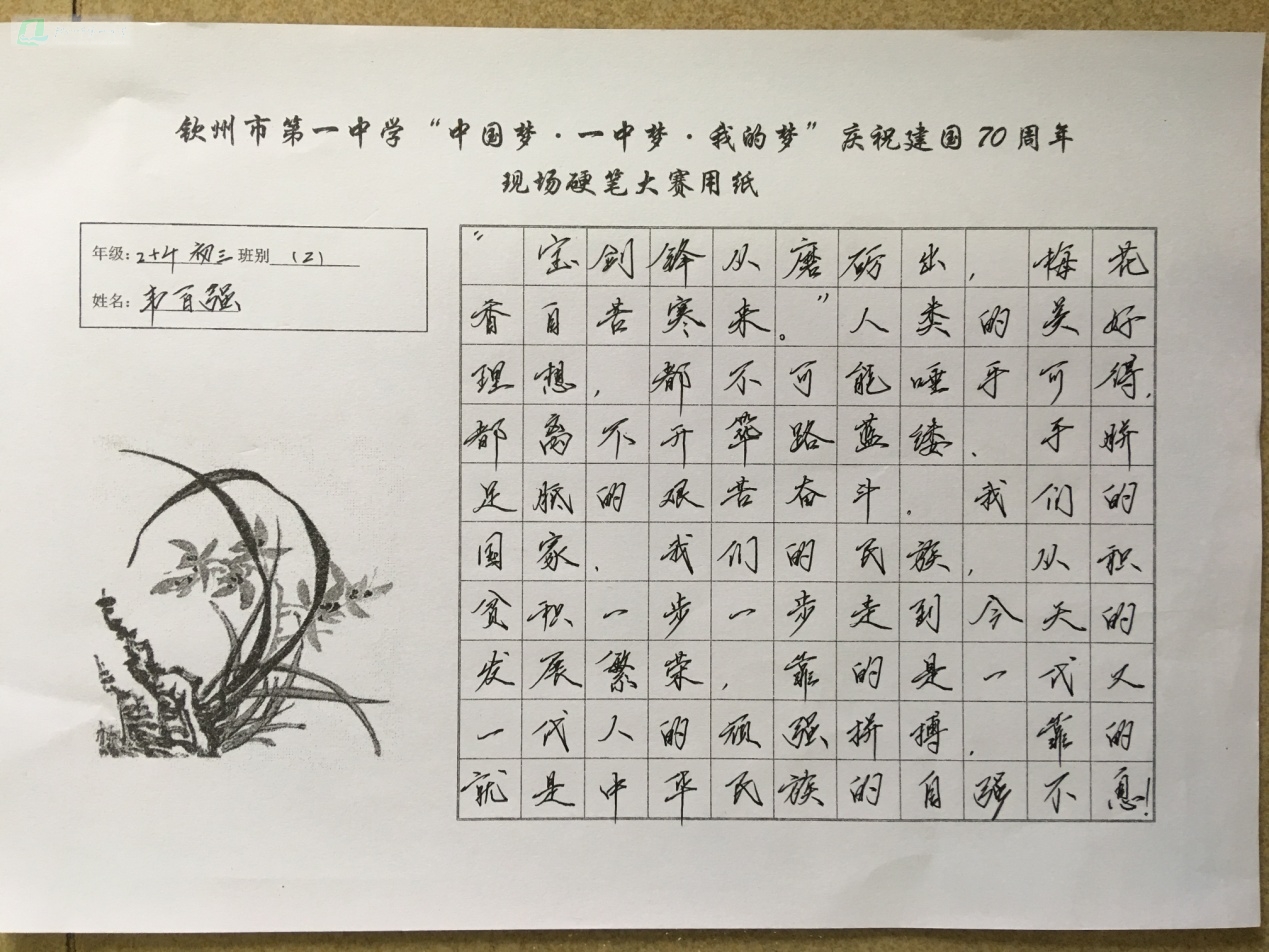 钦州市第一中学“中国梦·一中梦·我的梦”庆祝建国70周年
现场硬笔大赛用纸
年级: 2+4 初三 班别 (2)
姓名: 韦百强
“宝剑锋从磨砺出，梅花
香自苦寒来。”人类的美好
理想，都不可能唾手可得，
都离不开筚路蓝缕、手胼
足胝的艰苦奋斗。我们的
国家，我们的民族，从积
贫积一步一步走到今天的
发展繁荣，靠的是一代又
一代人的顽强拼搏，靠的
就是中华民族的自强不息！